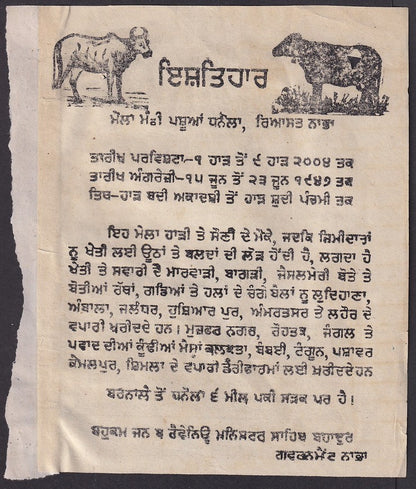 ਇਸ਼ਤਿਹਾਰ
ਮੇਲਾ ਮੰਡੀ ਪਸ਼ੂਆਂ ਧਨੌਲਾ, ਰਿਆਸਤ ਨਾਭਾ
ਤਾਰੀਖ ਪਰਵਿਸ਼ਟਾ-੧ ਹਾੜ ਤੋਂ ੯ ਹਾੜ ੨੦੦੪ ਤਕ
ਤਾਰੀਖ ਅੰਗਰੇਜ਼ੀ-੧੫ ਜੂਨ ਤੋਂ ੨੩ ਜੂਨ ੧੯੪੭ ਤਕ
ਤਿਥ-ਹਾੜ ਬਦੀ ਅਕਾਦਸ਼ੀ ਤੋਂ ਹਾੜ ਸ਼ੁਦੀ ਪੰਚਮੀ ਤਕ
ਇਹ ਮੇਲਾ ਹਾੜੀ ਤੇ ਸੌਣੀ ਦੇ ਮੌਕੇ, ਜਦਕਿ ਜ਼ਿਮੀਦਾਰਾਂ
ਨੂ ਖੇਤੀ ਲਈ ਊਠਾਂ ਤੇ ਬਲਦਾਂ ਦੀ ਲੋੜ ਹੋਂਦੀ ਹੈ, ਲਗਦਾ ਹੈ
ਖੇਤੀ ਤੇ ਸਵਾਰੀ ਦੇ ਮਾਰਵਾੜੀ, ਬਾਗੜੀ, ਜੈਸਲਮੇਰੀ ਬੋਤੇ ਤੇ
ਬੋਤੀਆਂ ਰੱਥਾਂ, ਗਡਿਆਂ ਤੇ ਹਲਾਂ ਦੇ ਚੰਗੇ ਬੈਲਾਂ ਨੂ ਲੁਦਿਹਾਣਾ,
ਅੰਬਾਲਾ, ਜਲੰਧਰ, ਹੁਸ਼ਿਆਰ ਪੁਰ, ਅੰਮਰਤਸਰ ਤੇ ਲਹੌਰ ਦੇ
ਵਪਾਰੀ ਖਰੀਦਦੇ ਹਨ। ਮੁਜ਼ਫਰ ਨਗਰ, ਰੋਹਤਕ, ਜੰਗਲ ਤੇ
ਪਵਾਦ ਦੀਆਂ ਕੁੰਢੀਆਂ ਮੈਸਾਂ ਕਲਕਤਾ, ਬੰਬਈ, ਰੰਗੂਨ, ਪਸ਼ਾਵਰ
ਕੈਮਲਪੁਰ, ਸ਼ਿਮਲਾ ਦੇ ਵਪਾਰੀ ਡੇਰੀਫਾਰਮਾਂ ਲਈ ਖ਼ਰੀਦਦੇਹਨ
ਬਰਨਾਲੇ ਤੋਂ ਧਨੌਲਾ ੬ ਮੀਲ ਪਕੀ ਸੜਕ ਪਰ ਹੈ।
ਬਹੁਕਮ ਜਨ ਬ ਰੈਵੇਨਿਊ ਮਨਿਸਟਰ ਸਾਹਿਬ ਬਹਾਦੁਰ
ਗਵਰਨਮੈਂਟ ਨਾਭਾ